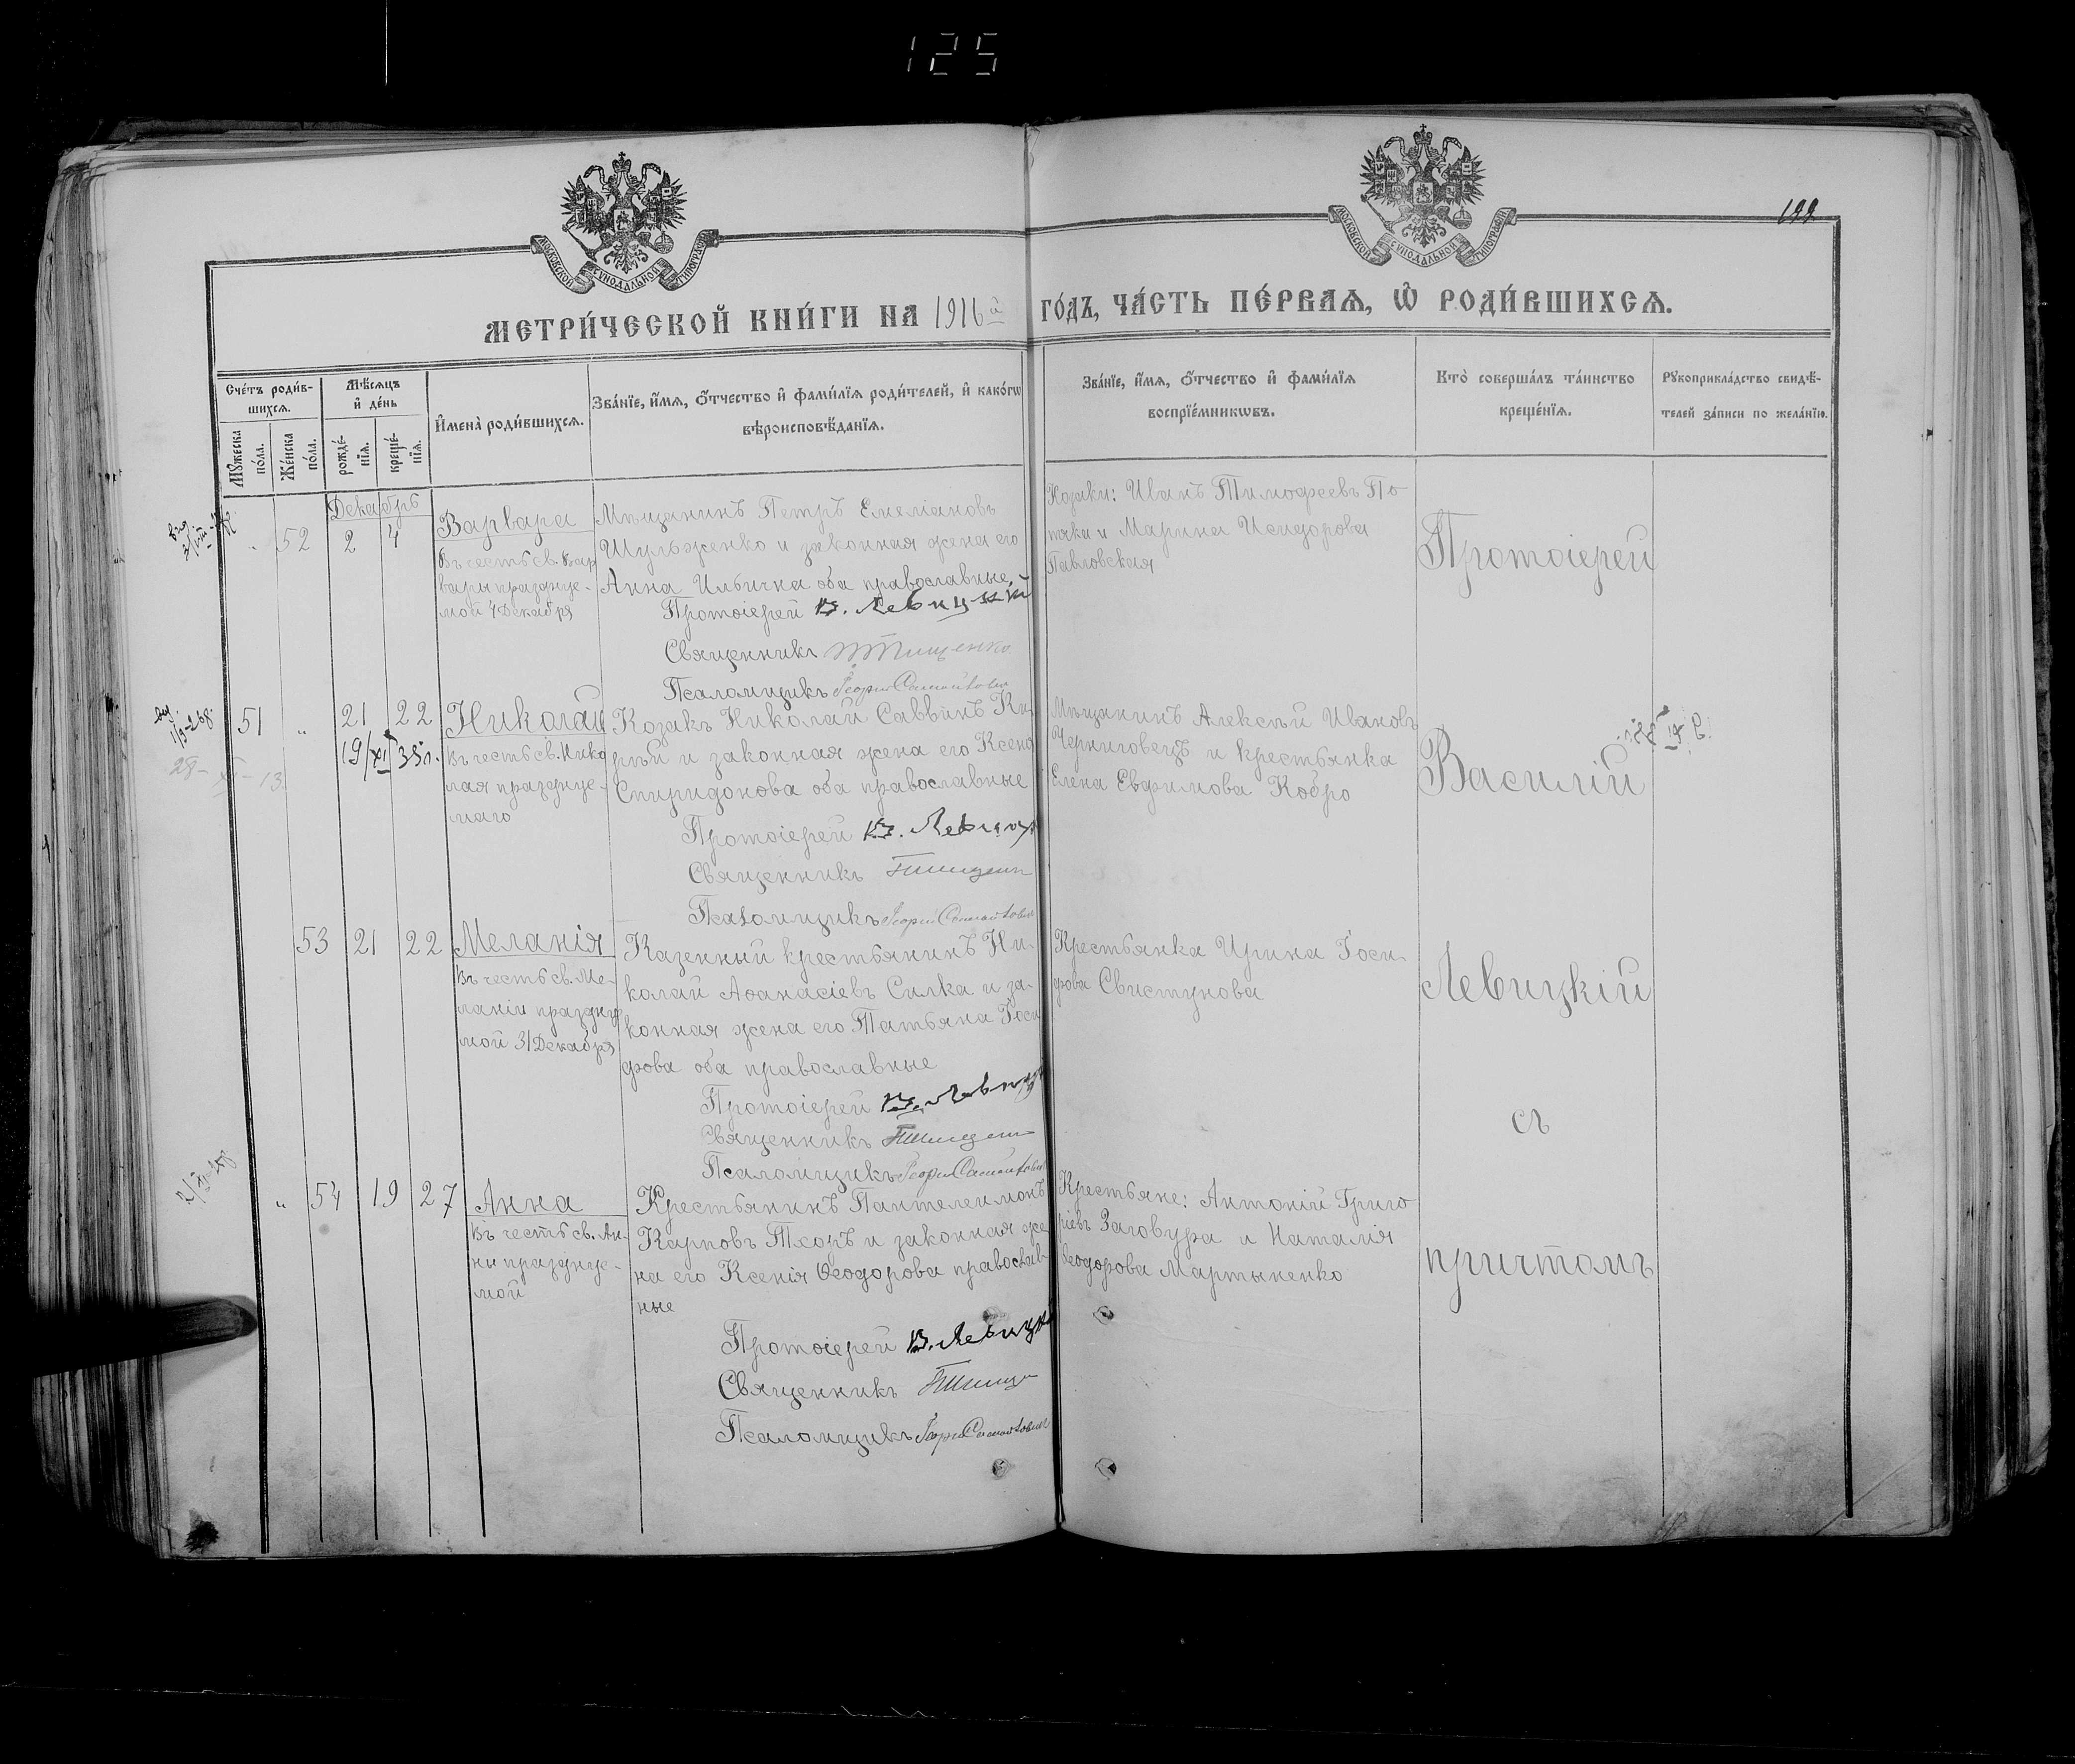 125
МОСКОВСКОЙ СѴНОДАЛЬНОЙ ТИПОГРАФІИ
МОСКОВСКОЙ СѴНОДАЛЬНОЙ ТИПОГРАФІИ
МЕТРИ́ЧЕСКОЙ КНИ́ГИ НА 1916й
ГО́ДЪ, ЧА́СТЬ ПЕ́РВАѦ, Ѽ РОДИ́ВШИХСѦ.
Сче́тъ роди́в-
шихсѧ.
Мꙋ́жеска
по́ла.
Же́нска
по́ла.
Мѣ́сѧцъ
и҆ де́нь
рожде́-
нїѧ.
креще́-
нїѧ.
И҆мена̀ роди́вшихсѧ.
Зва́нїе, и҆́мѧ, ѻ҆́тчество и҆ фами́лїѧ роди́телей, и҆ како́гѡ
вѣроисповѣ́данїѧ.
Зва́нїе, и҆́мѧ, ѻ҆́тчество и҆ фами́лїѧ
воспрїе́мникѡвъ.
Кто̀ соверша́лъ та́инство
креще́нїѧ.
Рꙋкоприкла́дство свидѣ́-
телей за́писи по жела́нїю.
Декабрь
" 52 2 4
Варвара
Въ честь св. Вар
вары празднуе-
мой 4 Декабря
Мѣщанинъ Петръ Емеліановъ
Шульженко и законная жена его
Анна Ильична оба православные
Протоіерей В. Левицкій
Священникъ Тищенко
Псаломщикъ Георгій
Козаки: Иванъ Тимофеевъ По
тяка и Марина Исидорова
Павловская
51 " 21 22
Николай
Въ честь св. Нико
лая празднуе-
маго
Козакъ Николай Саввинъ Ки-
рѣй и законная жена его Ксенія
Спиридонова оба православные
Протоіерей В. Левицк
Священникъ Тищенко
Псаломщикъ Георгій
Мѣщанинъ Алексѣй Ивановъ
Черниговецъ и крестьянка
Елена Евфимова Кобро
28-XI-13.
53 21 22
Меланія
Въ честь св. Ме-
ланіи празднуе
мой 31 Декабря
Казенный крестьянинъ Ни-
колай Аѳанасіевъ Силка и за-
конная жена его Татьяна Іоси
фова оба православные
Протоіерей В. Левицк
Священникъ Тищенко
Псаломщикъ Георгій
Крестьянка Ирина Іоси-
фова Свистунова
" 54 19 27
Анна
Въ честь св. Ан-
ны празднуе-
мой
Крестьянинъ Пантелеимонъ
Карповъ Тхоръ и законная же
на его Ксенія Ѳеодорова православ-
ные
Протоіерей В. Левицк
Священникъ Тищ
Псаломщикъ Георгій
Крестьяне: Антоній Григо
ріевъ Заговура и Наталія
Ѳеодорова Мартыненко
Протоіерей
Василій
Левицкій
съ
причтомъ